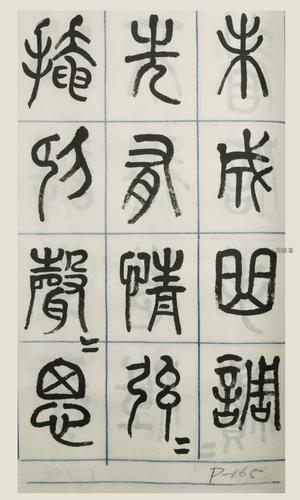 未成曲調
先有情弦=
掩抑聲=思
P-165